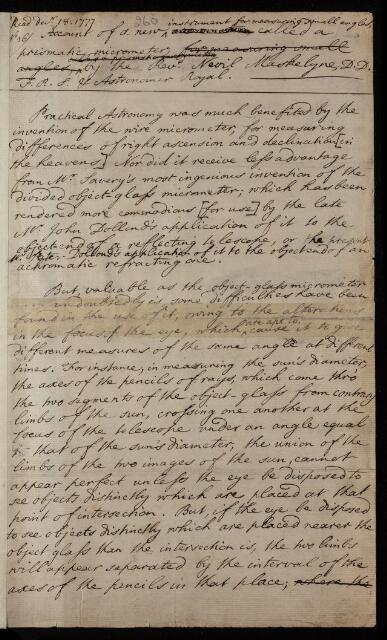 Read Decr. 18. 1777 260 instrument for measuring small angles,
Account of a new called a
prismatic micrometer, for measuring small
angles, by the Revd. Nevil Maskelyne, D.D.
F. R. S. & Astronomer Royal.
Practical Astronomy was much benefited by the
invention of the wire micrometer, for measuring
differences of right ascension and declination [in
the heavens]. Nor did it receive less advantage
from Mr. Savery's most ingenious invention of the
divided object-glass micrometer; which has been
rendered more commodious [for use] by the late
Mr. John Dollond's application of it to the
object end of a reflecting telescope, or the present
Mr. Peter Dollond's application of it to the object end of an
achromatic refracting one.
But, valuable as the object-glass micrometer
undoubtedly is, some difficulties have been
found in the use of it, owing to the alterations
in the focus of the eye, which are apt to cause it to give
different measures of the same angle at different
times. For instance, in measuring the sun's diameter,
the axes of the pencils of rays, which come thro'
the two segments of the object-glass from contrary
limbs of the sun, crossing one another at the
focus of the telescope under an angle equal
to that of the sun's diameter, the union of the
limbs of the two images of the sun, cannot
appear perfect unless the eye be disposed to
see objects distinctly which are placed at that
point of intersection. But, if the eye be disposed
to see objects distinctly which are placed nearer the
object glass than the intersection is, the two limbs
will appear separated by the interval of the
axes of the pencils in that place; where the